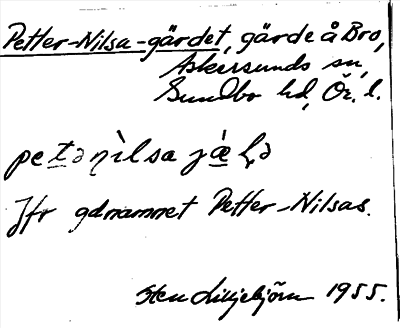 Petter-Nilsa-gärdet, gärde å Bro,
Askersunds sn,
Sundbo hd, Ör. l.
petənìlsa jæ̀ḷə
Jfr gdnamnet Petter-Nilsas.
Sten Lilljebjörn 1955.